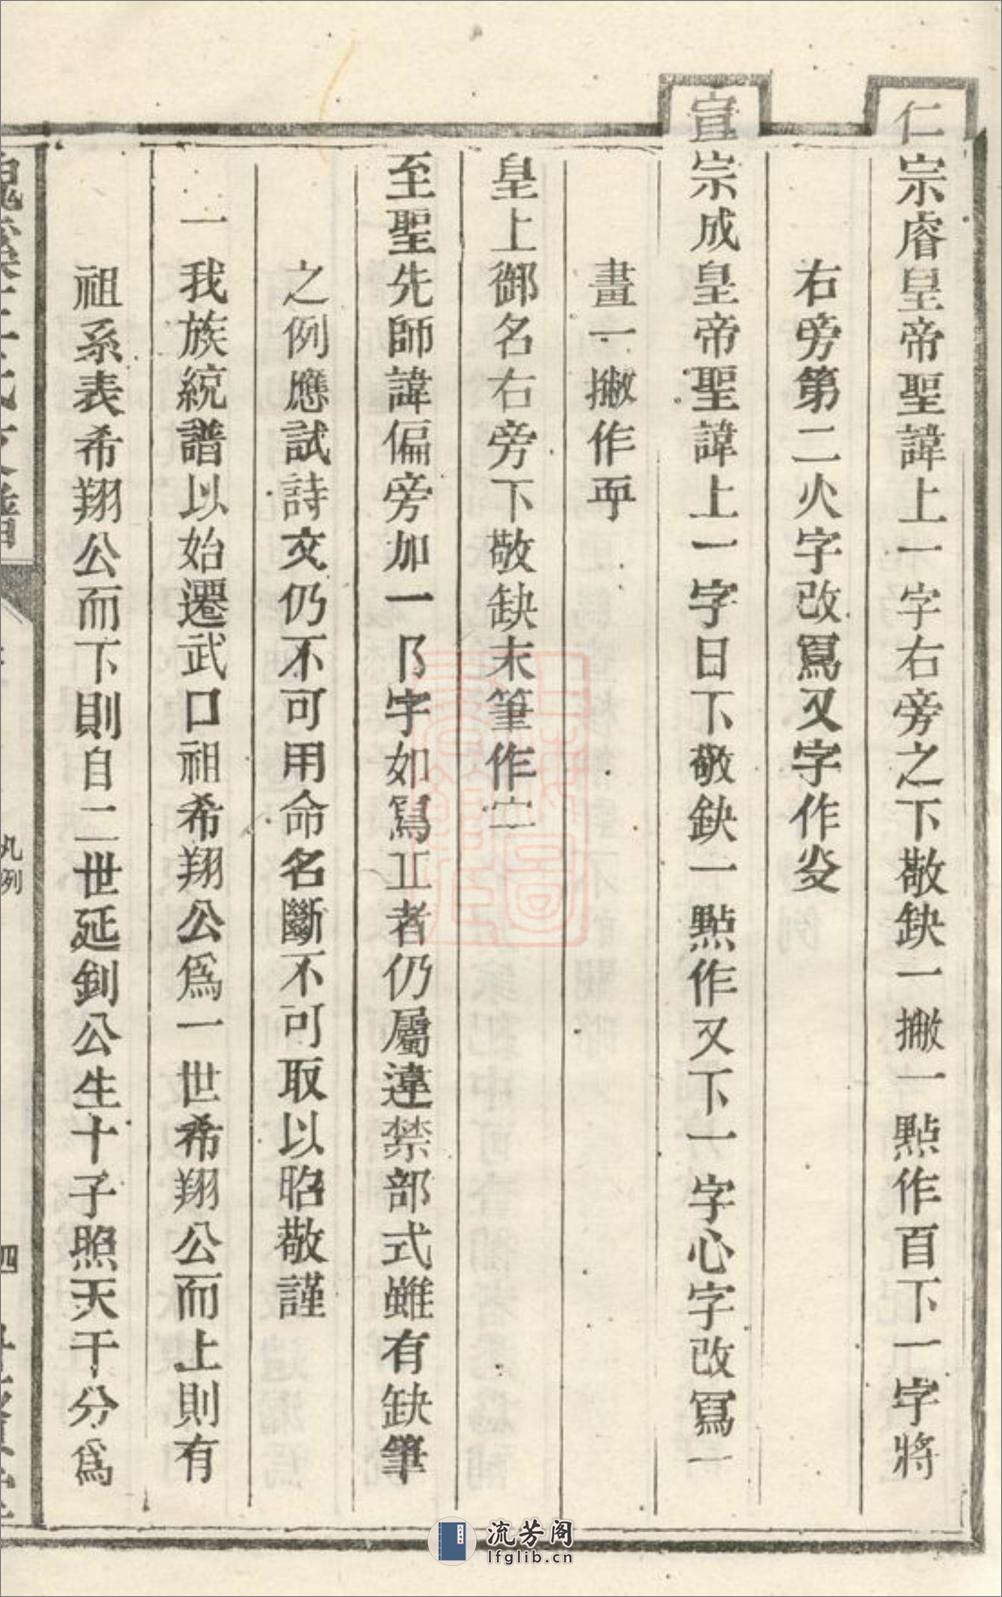 仁宗睿皇帝聖諱上一字右旁之下敬缺一撇一點作百下一字將
右旁第二火字改寫又字作炏
宣宗成皇帝聖諱上一字日下敬缺一點作又下一字心字改寫一
畫一撇作𡧛
皇上御名右旁下敬缺末筆作𡧛
至聖先師諱偏旁加一阝字如寫工者仍屬違禁部式雖有缺筆
之例應試詩文仍不可用命名斷不可取以昭敬謹
一我族統譜以始遷武口祖希翔公爲一世希翔公而上則有
祖系表希翔公而下則自二世延釗公生十子照天干分爲
凡例
四
流芳阁
lfglib.cn